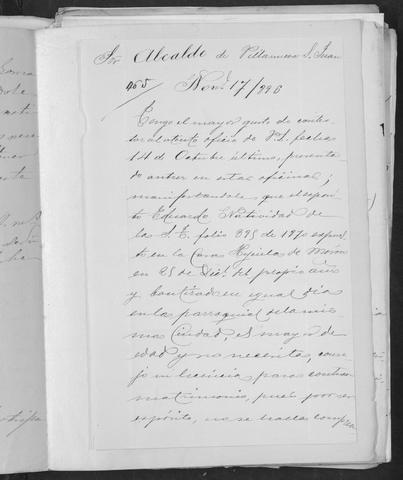 Sor Alcalde de Villanueva S. Juan
965/ Nove. 17/896
Tengo el mayor gusto de contes-
tar al atento oficio de V.S. fecha
14 de Octubre último, presenta-
do antier en estas oficinas;
manifestandole, que el expósi-
to Eduardo Natividad de
la S. T. folio 395 de 1870 expues-
to en la Casa Hijuela de Morón
en 25 de Dice. del propio año
y bautizado en igual dia
en la parroquial de la mis-
ma Ciudad, es mayor de
edad y no necesita, conse-
jo ni licencia para contraer
matrimonio, pues por ser
expósito, no se halla compren